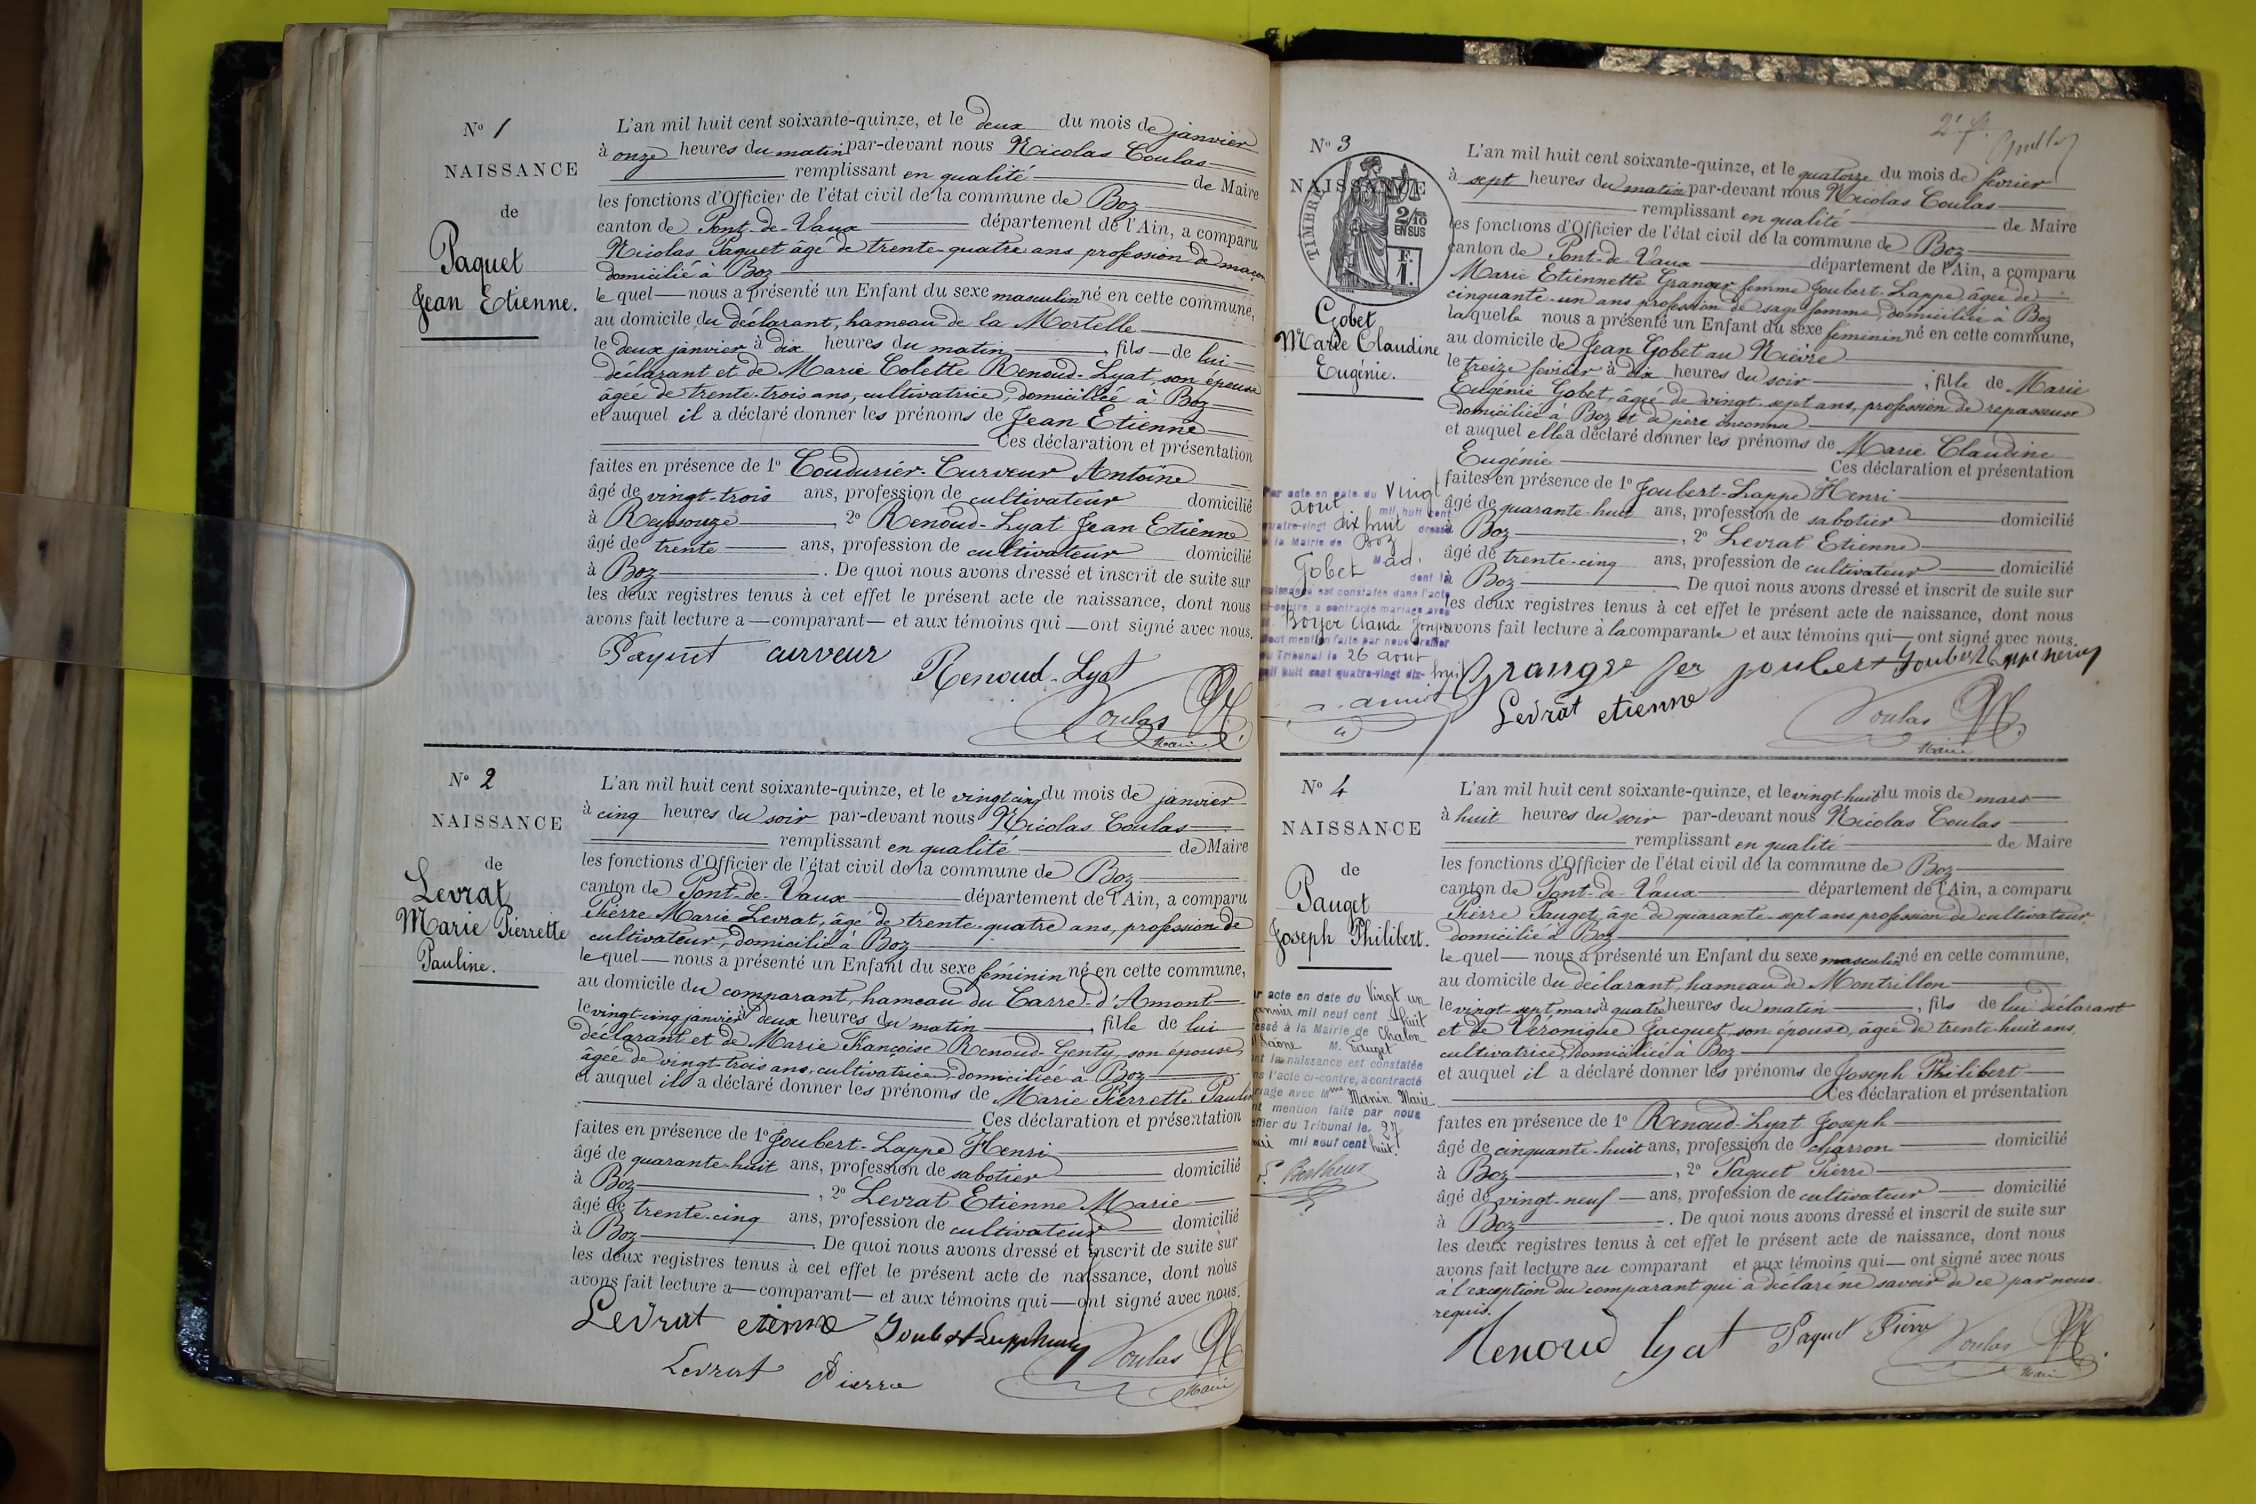 N° 1
NAISSANCE
de
Paquet
Jean Etienne.
L'an mil huit cent soixante-quinze, et le deux du mois de janvier
à onze heures du matin par-devant nous Nicolas Coulas
remplissant en qualité de Maire
les fonctions d'Officier de l'état civil de la commune de Boz
canton de Pont-de-Vaux département de l'Ain, a comparu
Nicolas Paquet âgé de trente-quatre ans profession de maçon
domicilié à Boz
le quel nous a présenté un Enfant du sexe masculin né en cette commune,
au domicile du déclarant, hameau de la Mortelle
le deux janvier à dix heures du matin, fils de lui
déclarant et de Marie Colette Renoud-Lyat, son épouse
âgée de trente-trois ans, cultivatrice, domiciliée à Boz
et auquel il a déclaré donner les prénoms de Jean Etienne
Ces déclaration et présentation
faites en présence de 1° Coudurier-Curveur Antoine
âgé de vingt-trois ans, profession de cultivateur domicilié
à Reyssouze, 2° Renoud-Lyat Jean Etienne
âgé de trente ans, profession de cultivateur domicilié
à Boz. De quoi nous avons dressé et inscrit de suite sur
les deux registres tenus à cet effet le présent acte de naissance, dont nous
avons fait lecture a comparant et aux témoins qui ont signé avec nous.
curveur
Renoud-Lyat
Coulas
Maire
N° 2
NAISSANCE
de
Levrat
Marie Pierrette
Pauline.
L'an mil huit cent soixante-quinze, et le vingt-cinq du mois de janvier
à cinq heures du soir par-devant nous Nicolas Coulas
remplissant en qualité de Maire
les fonctions d'Officier de l'état civil de la commune de Boz
canton de Pont-de-Vaux département de l'Ain, a comparu
Pierre Marie Levrat, âgé de trente-quatre ans, profession de
cultivateur, domicilié à Boz
le quel nous a présenté un Enfant du sexe féminin né en cette commune,
au domicile du comparant, hameau du Carre-d'Amont
le vingt-cinq janvier à deux heures du matin, fille de lui
déclarant et de Marie Françoise Renoud-Genty, son épouse,
âgée de vingt-trois ans, cultivatrice, domiciliée à Boz
et auquel il a déclaré donner les prénoms de Marie Pierrette Pauline
Ces déclaration et présentation
faites en présence de 1° Joubert-Lappe Henri
âgé de quarante-huit ans, profession de sabotier domicilié
à Boz, 2° Levrat Etienne Marie
âgé de trente-cinq ans, profession de cultivateur domicilié
à Boz De quoi nous avons dressé et inscrit de suite sur
les deux registres tenus à cet effet le présent acte de naissance, dont nous
avons fait lecture a comparant et aux témoins qui ont signé avec nous.
Levrat etienne
Coulas
Levrat Pierre
Maire
N° 3
NAISSANCE
TIMBRE
2/10
EN SUS
F.
1.
Gobet
Marie Claudine
Eugénie.
L'an mil huit cent soixante-quinze, et le quatorze du mois de février
à sept heures du matin par-devant nous Nicolas Coulas
remplissant en qualité de Maire
les fonctions d'Officier de l'état civil de la commune de Boz
canton de Pont-de-Vaux département de l'Ain, a comparu
Marie Etiennette Granger femme Joubert-Lappe, âgée de
cinquante-un ans profession de sage femme, domiciliée à Boz
laquelle nous a présenté un Enfant du sexe féminin né en cette commune,
au domicile de Jean Gobet au Nièvre
le treize février à dix heures du soir, fille de Marie
Eugénie Gobet, âgée de vingt-sept ans, profession de repasseuse
domiciliée à Boz et de père inconnu
et auquel elle a déclaré donner les prénoms de Marie Claudine
Eugénie Ces déclaration et présentation
faites en présence de 1° Joubert-Lappe Henri
âgé de quarante-huit ans, profession de sabotier domicilié
à Boz, 2° Levrat Etienne
âgé de trente-cinq ans, profession de cultivateur domicilié
à Boz De quoi nous avons dressé et inscrit de suite sur
les deux registres tenus à cet effet le présent acte de naissance, dont nous
avons fait lecture à la comparante et aux témoins qui ont signé avec nous.
Par acte en date du Vingt
aout mil huit cent
quatre-vingt dix huit dressé
à la Mairie de Boz
Gobet Mad.
dont la
naissance est constatée dans l'acte
ci-contre, a contracté mariage avec
M. Boyer Claude
Dont mention faite par nous Greffier
du Tribunal le 26 aout
mil huit cent quatre-vingt dix-huit
Levrat etienne
Coulas
Maire
N° 4
NAISSANCE
de
Pauget
Joseph Philibert.
L'an mil huit cent soixante-quinze, et le vingt-huit du mois de mars
à huit heures du soir par-devant nous Nicolas Coulas
remplissant en qualité de Maire
les fonctions d'Officier de l'état civil de la commune de Boz
canton de Pont-de-Vaux département de l'Ain, a comparu
Pierre Pauget, âgé de quarante-sept ans profession de cultivateur,
domicilié à Boz
le quel nous a présenté un Enfant du sexe masculin né en cette commune,
au domicile du déclarant, hameau de Montrillon
le vingt-sept mars à quatre heures du matin, fils de lui déclarant
et de Véronique Jacquet, son épouse, âgée de trente-huit ans,
cultivatrice, domiciliée à Boz
et auquel il a déclaré donner les prénoms de Joseph Philibert
Ces déclaration et présentation
faites en présence de 1° Renoud-Lyat Joseph
âgé de cinquante-huit ans, profession de charron domicilié
à Boz, 2° Paquet Pierre
âgé de vingt-neuf ans, profession de cultivateur domicilié
à Boz. De quoi nous avons dressé et inscrit de suite sur
les deux registres tenus à cet effet le présent acte de naissance, dont nous
avons fait lecture au comparant et aux témoins qui ont signé avec nous
à l'exception du comparant qui a déclaré ne savoir de ce par nous
requis.
ar acte en date du Vingt un
janvier mil neuf cent huit
essé à la Mairie de Chalon
s Saône M. Pauget
nt la naissance est constatée
ns l'acte ci-contre, a contracté
riage avec Mme Manin Marie
nt mention faite par nous
effier du Tribunal le 27
mai mil neuf cent huit.
Renoud lyat
Paquet Pierre
Coulas
Maire